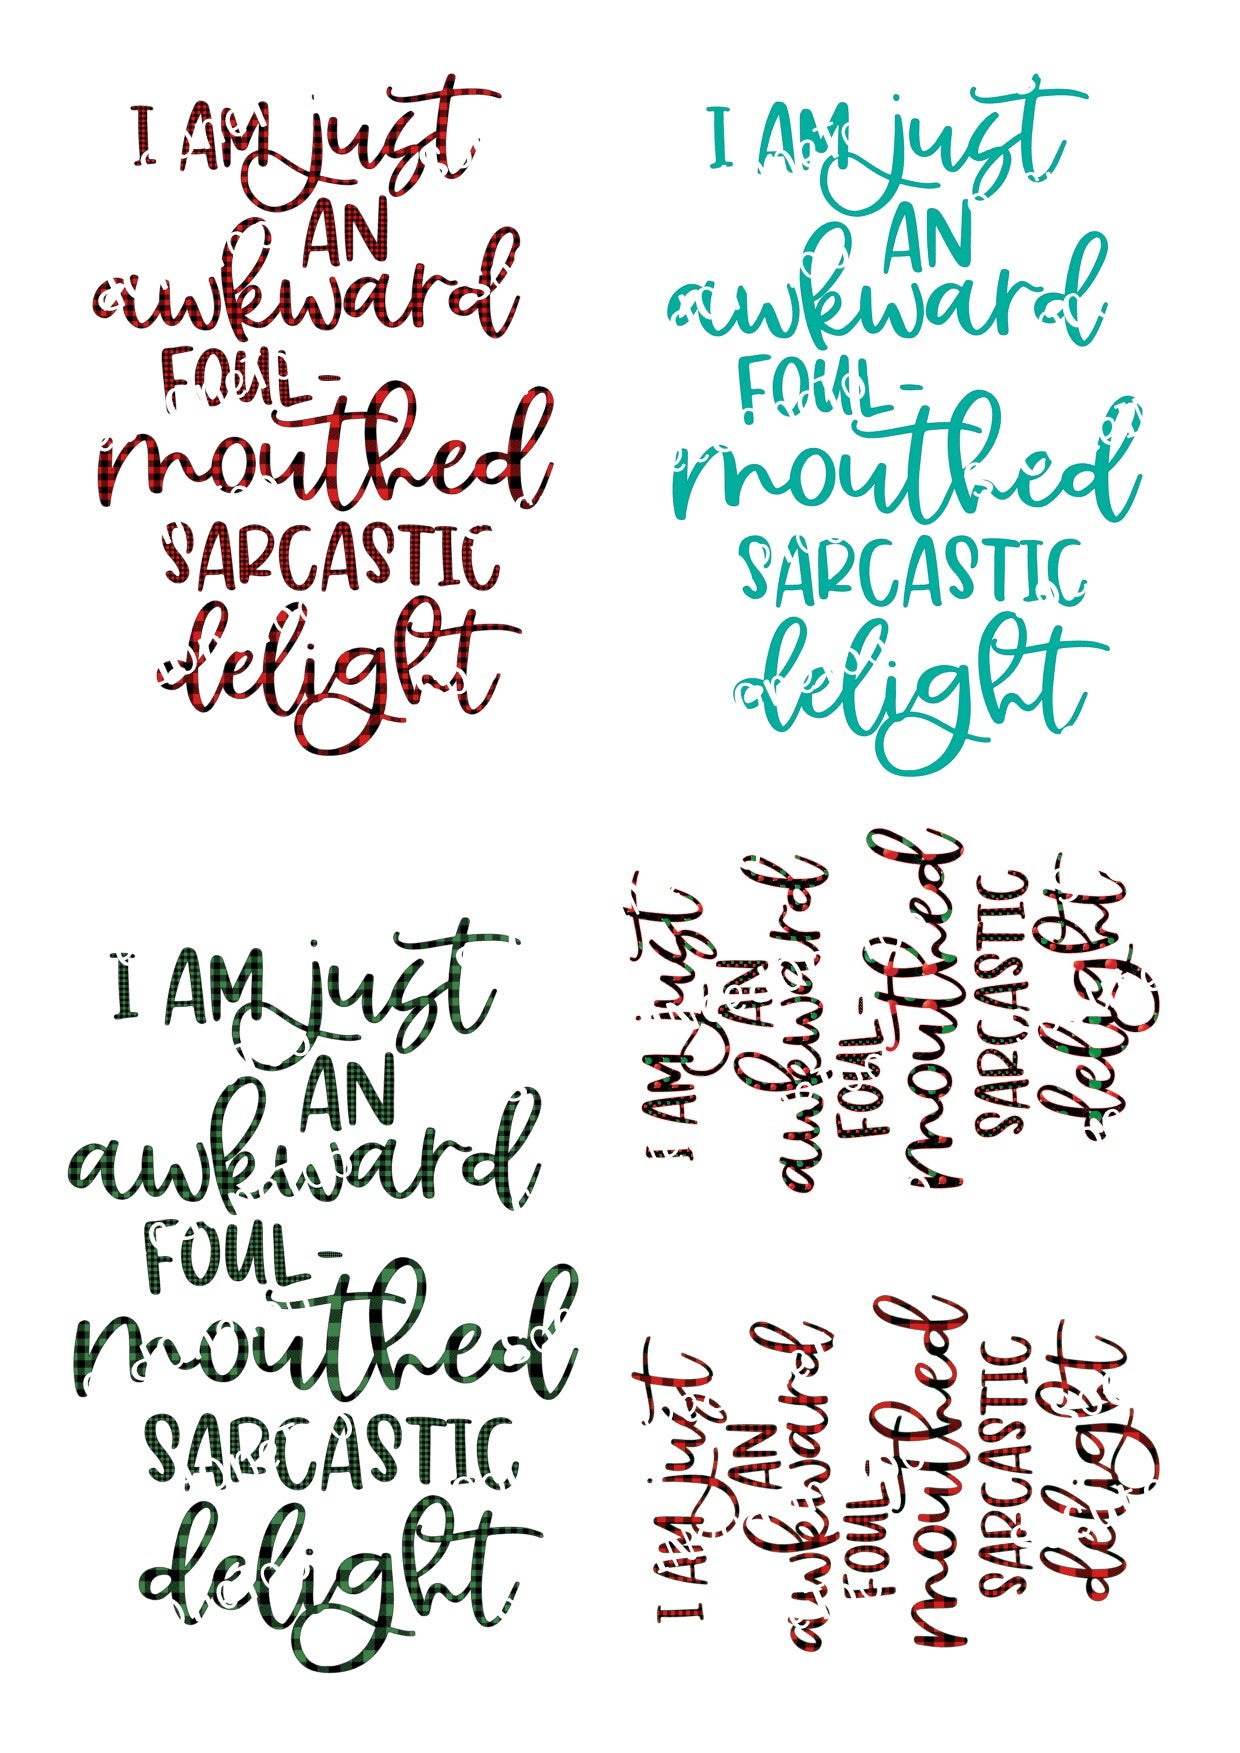 I AM just
AN
awkward
FOUL-
mouthed
SARCASTIC
delight
I AM just
AN
awkward
FOUL-
mouthed
SARCASTIC
delight
I AM just
AN
awkward
FOUL-
mouthed
SARCASTIC
delight
I AM just
AN
awkward
FOUL-
mouthed
SARCASTIC
delight
I AM just
AN
awkward
FOUL-
mouthed
SARCASTIC
delight